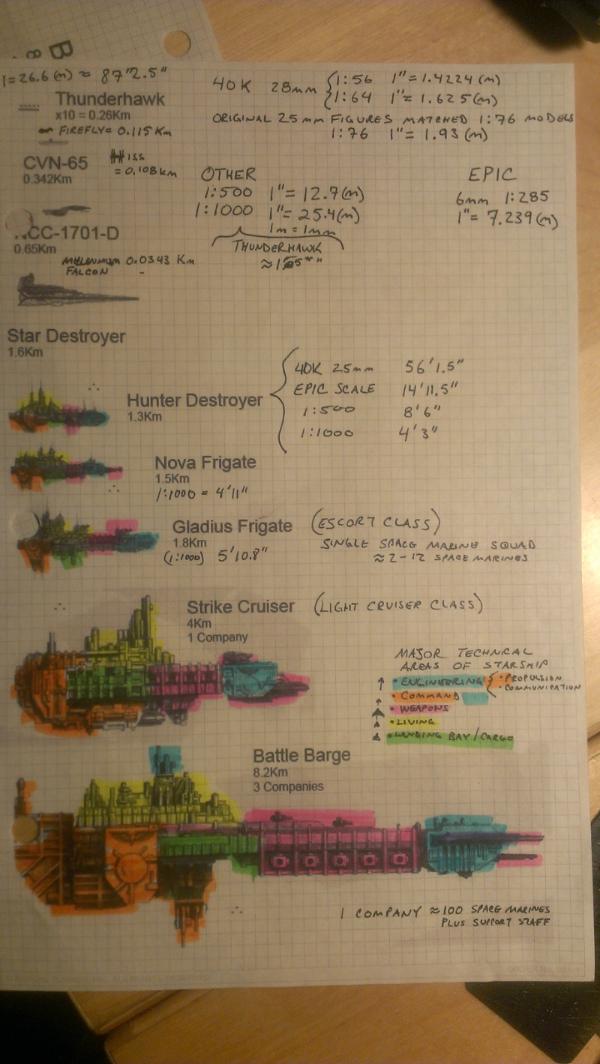 B
8
1=26.6(m) ≈ 87'2.5"
Thunderhawk
x10 = 0.26Km
FIREFLY= 0.115Km
40K 28mm
1:56 1"=1.4224(m)
1:64 1"=1.625(m)
ORIGINAL 25mm FIGURES MATCHED 1:76 MODELS
1:76 1"=1.93(m)
CVN-65
0.342Km
ISS
=0.108km
OTHER
1:500 1"=12.7(m)
1:1000 1"=25.4(m)
1m=1mm
THUNDERHAWK
EPIC
6mm 1:285
1"=7.239(m)
CC-1701-D
0.65Km
MILLENNIUM 0.0343 Km
FALCON -
Star Destroyer
1.6Km
Hunter Destroyer
1.3Km
40K 25mm 56'1.5"
EPIC SCALE 14'11.5"
1:500 8'6"
1:1000 4'3"
Nova Frigate
1.5Km
1/1000 = 4'11"
Gladius Frigate (ESCORT CLASS)
1.8Km
(1:1000) 5'10.8"
SINGLE SPACE MARINE SQUAD
≈2-12 SPACE MARINES
Strike Cruiser (LIGHT CRUISER CLASS)
4Km
1 Company
MAJOR TECHNICAL
AREAS OF STARSHIP
• ENGINEERING { • PROPULSION
• COMMUNICATION
• COMMAND
• WEAPONS
• LIVING
• LANDING BAY/CARGO
Battle Barge
8.2Km
3 Companies
1 COMPANY ≈100 SPACE MARINES
PLUS SUPPORT STAFF